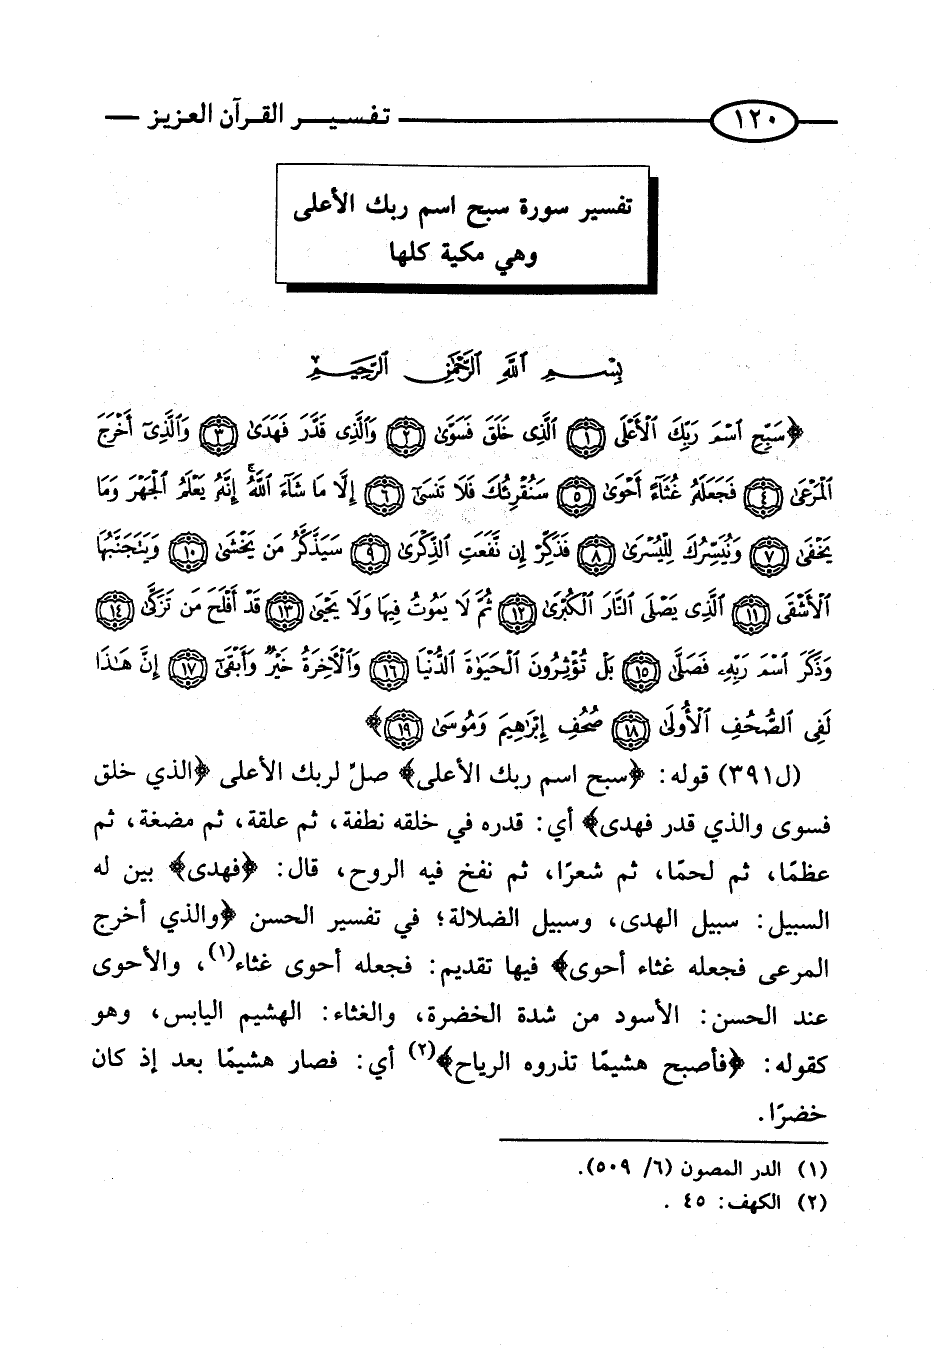 ١٢٠ تفسير القرآن العزيز
تفسير سورة سبح اسم ربك الأعلى
وهي مكية كلها
بِسْمِ اللَّهِ الرَّحْمَٰنِ الرَّحِيمِ
﴿سَبِّحِ اسْمَ رَبِّكَ الْأَعْلَى ١ الَّذِي خَلَقَ فَسَوَّىٰ ٢ وَالَّذِي قَدَّرَ فَهَدَىٰ ٣ وَالَّذِي أَخْرَجَ
الْمَرْعَىٰ ٤ فَجَعَلَهُ غُثَاءً أَحْوَىٰ ٥ سَنُقْرِئُكَ فَلَا تَنسَىٰ ٦ إِلَّا مَا شَاءَ اللَّهُ إِنَّهُ يَعْلَمُ الْجَهْرَ وَمَا
يَخْفَىٰ ٧ وَنُيَسِّرُكَ لِلْيُسْرَىٰ ٨ فَذَكِّرْ إِن نَّفَعَتِ الذِّكْرَىٰ ٩ سَيَذَّكَّرُ مَن يَخْشَىٰ ١٠ وَيَتَجَنَّبُهَا
الْأَشْقَى ١١ الَّذِي يَصْلَى النَّارَ الْكُبْرَىٰ ١٢ ثُمَّ لَا يَمُوتُ فِيهَا وَلَا يَحْيَىٰ ١٣ قَدْ أَفْلَحَ مَن تَزَكَّىٰ ١٤
وَذَكَرَ اسْمَ رَبِّهِ فَصَلَّىٰ ١٥ بَلْ تُؤْثِرُونَ الْحَيَوٰةَ الدُّنْيَا ١٦ وَالْآخِرَةُ خَيْرٌ وَأَبْقَىٰ ١٧ إِنَّ هَٰذَا
لَفِي الصُّحُفِ الْأُولَىٰ ١٨ صُحُفِ إِبْرَاهِيمَ وَمُوسَىٰ ١٩﴾
(ل٣٩١) قوله: ﴿سبح اسم ربك الأعلى﴾ صلِّ لربك الأعلى ﴿الذي خلق
فسوى والذي قدر فهدى﴾ أي: قدره في خلقه نطفة، ثم علقة، ثم مضغة، ثم
عظمًا، ثم لحمًا، ثم شعرًا، ثم نفخ فيه الروح، قال: ﴿فهدى﴾ بين له
السبيل: سبيل الهدى، وسبيل الضلالة؛ في تفسير الحسن ﴿والذي أخرج
المرعى فجعله غثاء أحوى﴾ فيها تقديم: فجعله أحوى غثاء(١)، والأحوى
عند الحسن: الأسود من شدة الخضرة، والغثاء: الهشيم اليابس، وهو
كقوله: ﴿فأصبح هشيمًا تذروه الرياح﴾(٢) أي: فصار هشيمًا بعد إذ كان
خضرًا.
(١) الدر المصون (٦/ ٥٠٩).
(٢) الكهف: ٤٥ .